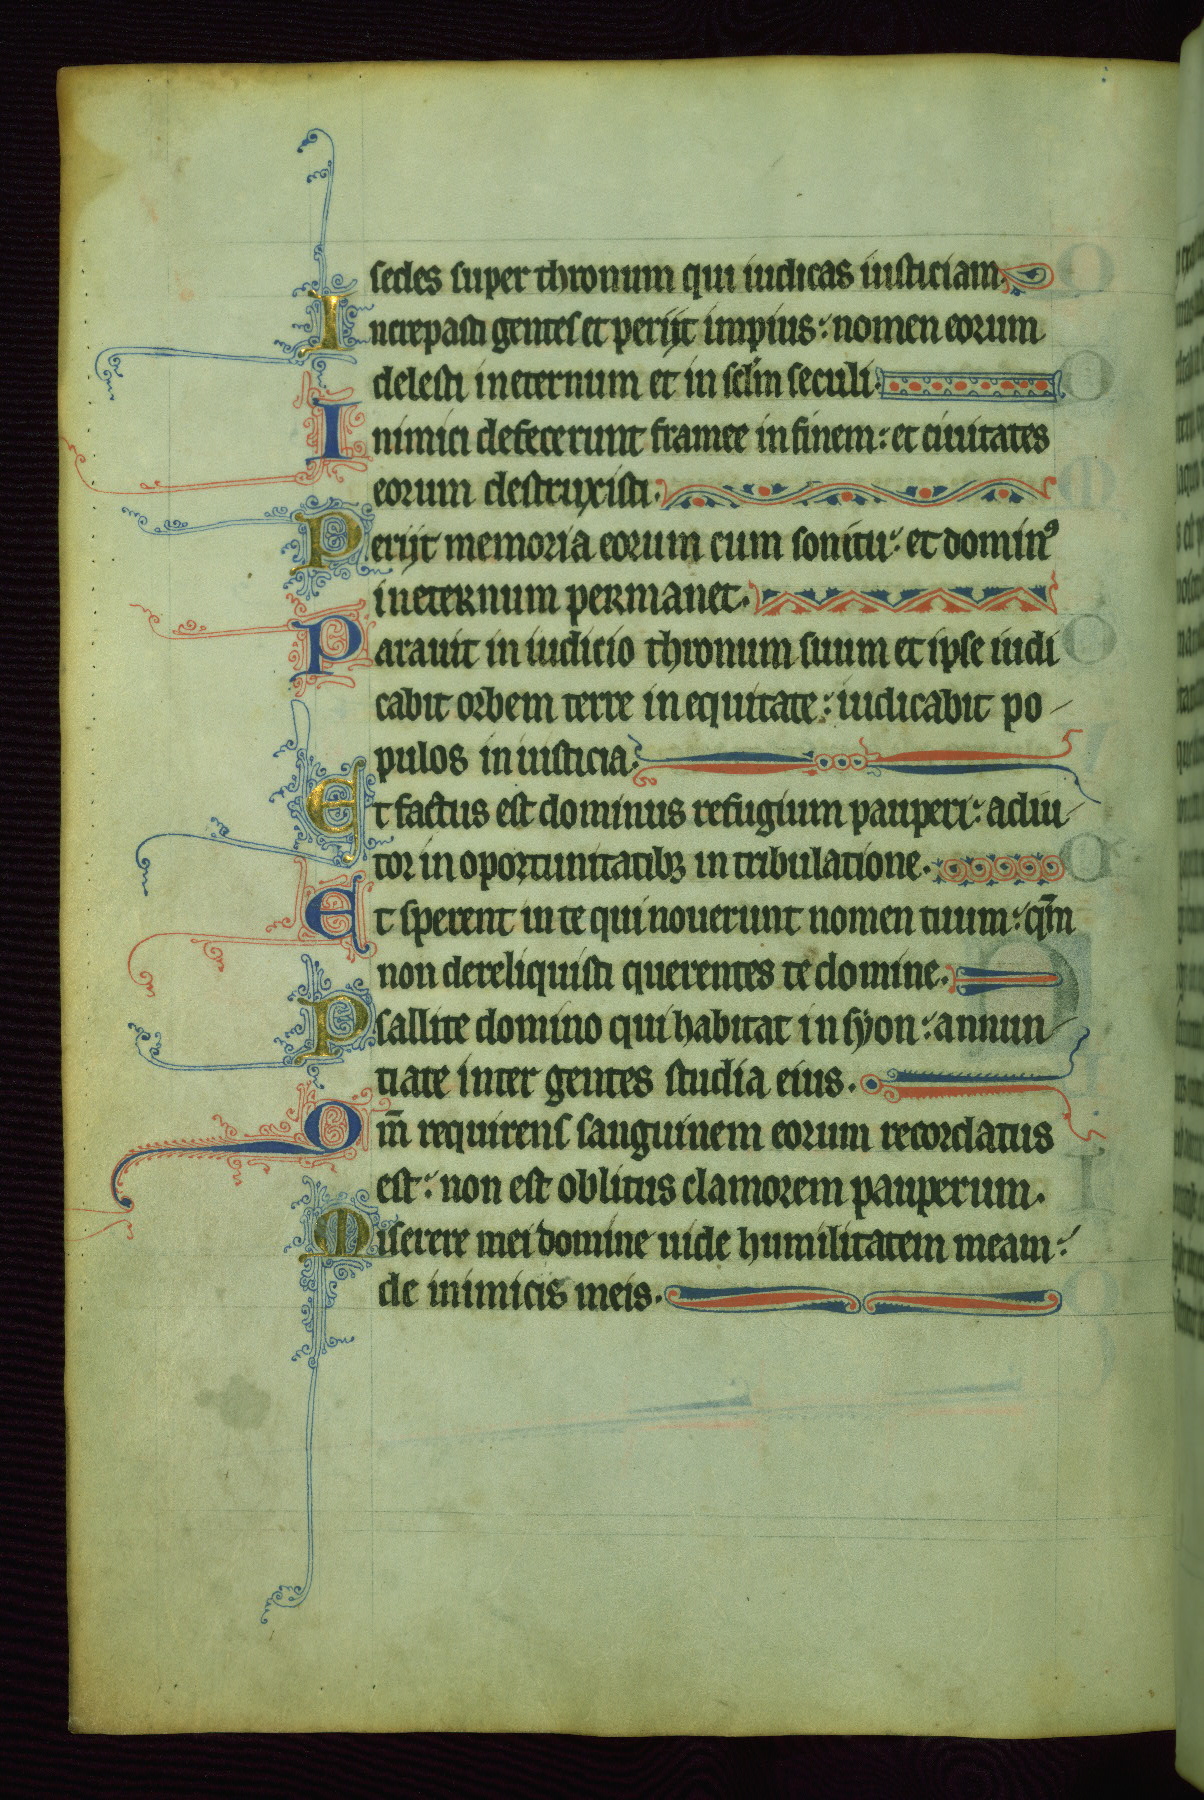 sedes super thronum qui iudicas iusticiam.
Increpasti gentes et perijt impius: nomen eorum
delesti in eternum et in sclm̄ seculi.
Inimici defecerunt framee in finem: et ciuitates
eorum destruxisti.
Perijt memoria eorum cum sonitu: et dominꝰ
in eternum permanet.
Parauit in iudicio thronum suum et ipse iudi
cabit orbem terre in equitate: iudicabit po-
pulos in iusticia.
Et factus est dominus refugium pauperi: adiu-
tor in oportunitatibꝫ in tribulatione.
Et sperent in te qui nouerunt nomen tuum: qm̄
non dereliquisti querentes te domine.
Psallite domino qui habitat in syon: annun-
tiate inter gentes studia eius.
Qm̄ requirens sanguinem eorum recordatus
est: non est oblitus clamorem pauperum.
Miserere mei domine uide humilitatem meam:
de inimicis meis.